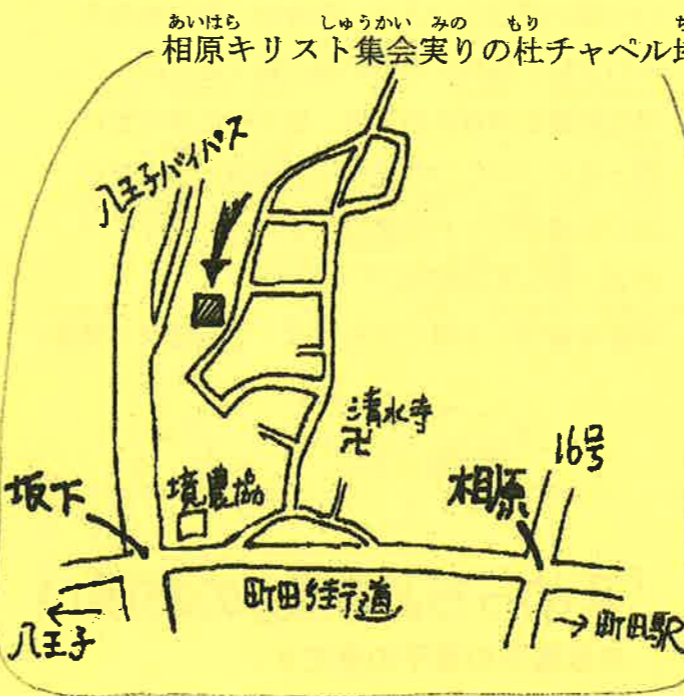 あいはら しゅうかい みの もり
相原キリスト集会実りの杜チャペル
八王子バイパス
清水寺
卍
16号
相原
坂下
境農協
町田街道
←
八王子
→町田駅